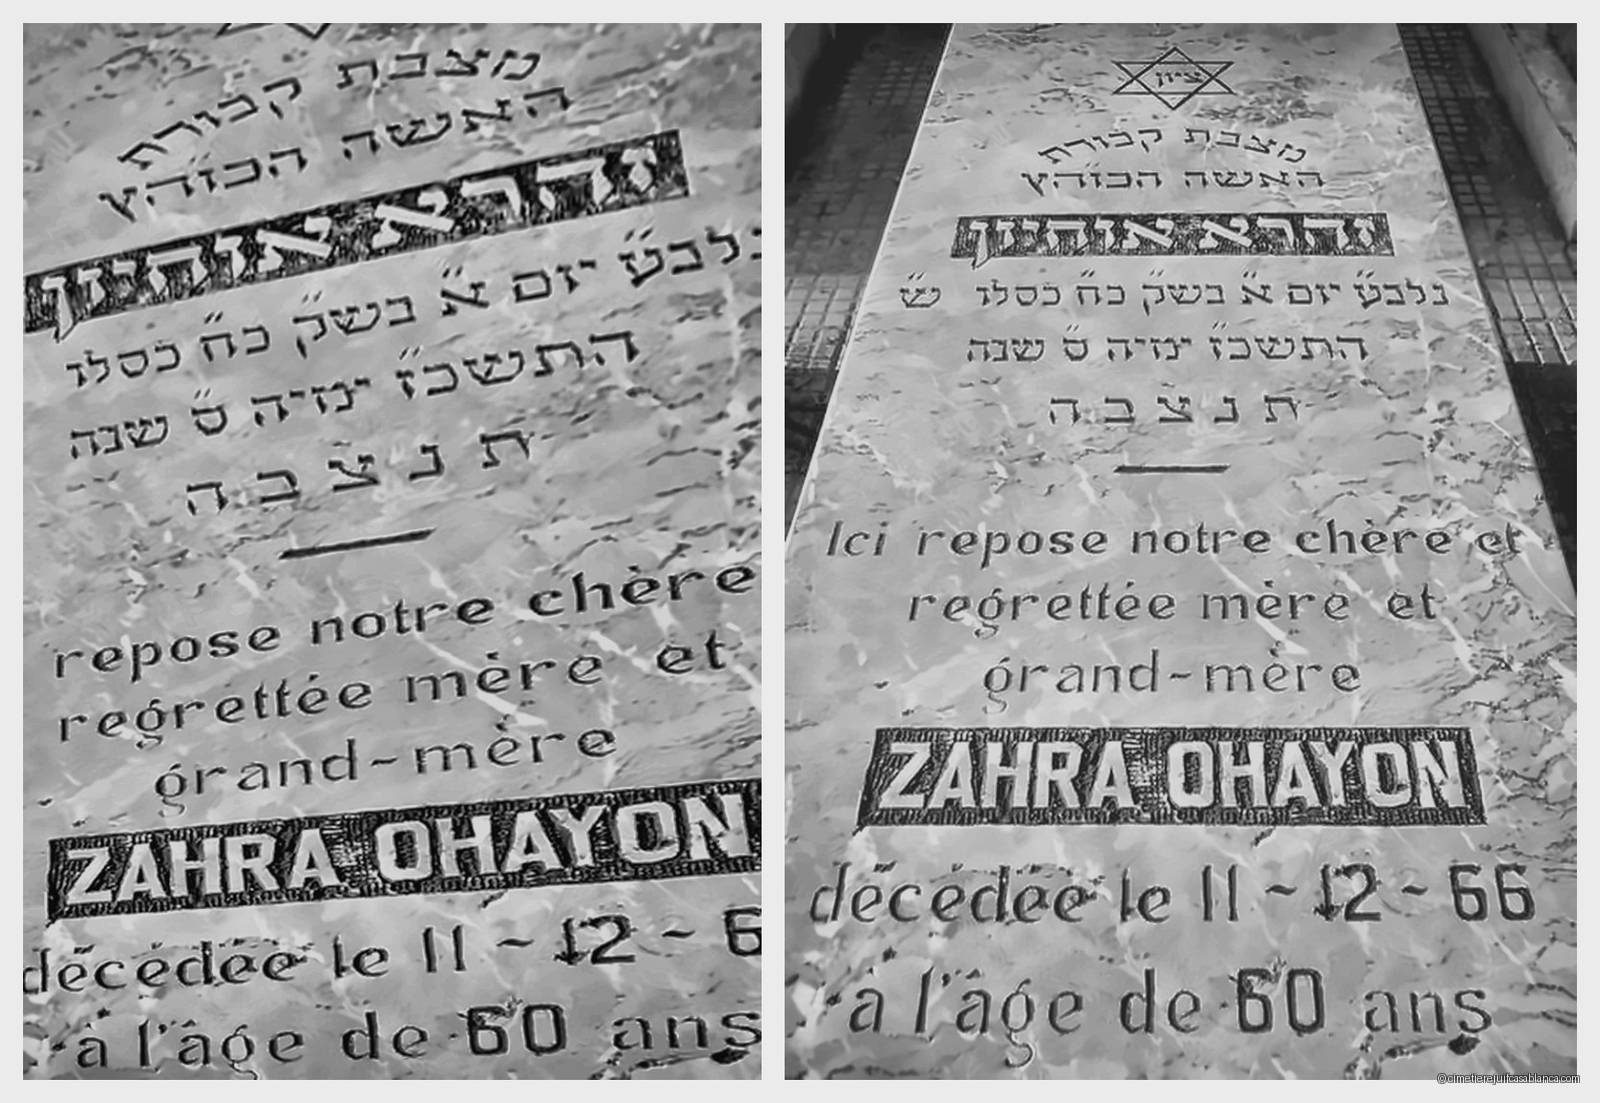 מצבת קבורת
האשה הכוהץ
זהרא אוחיון
נלבע״ש יום א״ בשק״ כח״ כסלו
התשכ״ז ימיה ס״ שנה
ת נ צ ב ה
repose notre chère
regrettée mère et
grand-mère
ZAHRA OHAYON
décédée le 11-12-6
à l'âge de 60 ans
ציון
מצבת קבורת
האשה הכוהץ
זהרא אוחיון
נלבע״ יום א״ בשק״ כח״ כסלו ש״
התשכ״ז ימיה ס״ שנה
ת נ צ ב ה
Ici repose notre chère et
regrettée mère et
grand-mère
ZAHRA OHAYON
décédée le 11-12-66
à l'âge de 60 ans
©cimetierejuifcasablanca.com